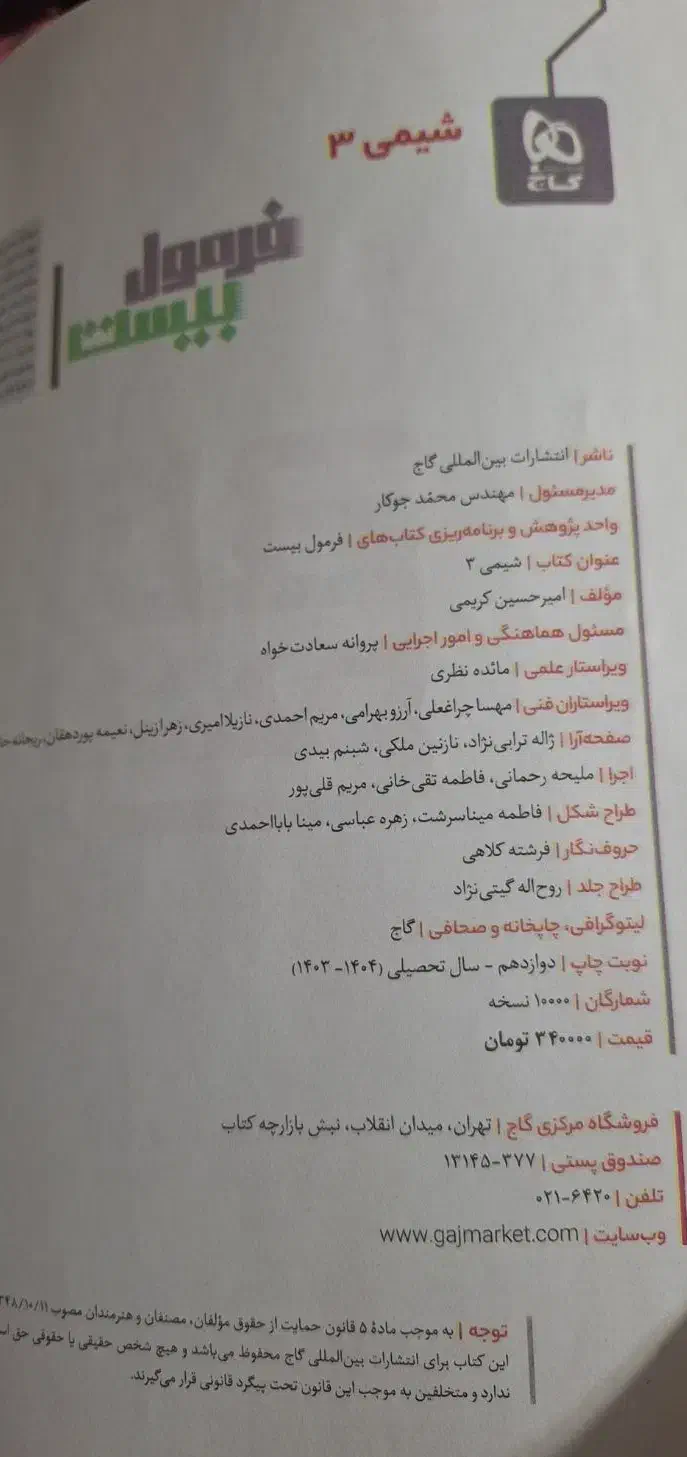 گاج
شیمی ۳
فرمول
بیست
ناشر | انتشارات بین‌المللی گاج
مدیرمسئول | مهندس محمّد جوکار
واحد پژوهش و برنامه‌ریزی کتاب‌های | فرمول بیست
عنوان کتاب | شیمی ۳
مؤلف | امیرحسین کریمی
مسئول هماهنگی و امور اجرایی | پروانه سعادت‌خواه
ویراستار علمی | مائده نظری
ویراستاران فنی | مهسا چراغعلی، آرزو بهرامی، مریم احمدی، نازیلا امیری، زهرا زینل، نعیمه پوردهقان، ریحانه
صفحه‌آرا | ژاله ترابی‌نژاد، نازنین ملکی، شبنم بیدی
اجرا | ملیحه رحمانی، فاطمه تقی‌خانی، مریم قلی‌پور
طراح شکل | فاطمه میناسرشت، زهره عباسی، مینا بابااحمدی
حروف‌نگار | فرشته کلاهی
طراح جلد | روح‌اله گیتی‌نژاد
لیتوگرافی، چاپخانه و صحافی | گاج
نوبت چاپ | دوازدهم - سال تحصیلی (۱۴۰۴- ۱۴۰۳)
شمارگان | ۱۰۰۰۰ نسخه
قیمت | ۳۴۰۰۰۰ تومان
فروشگاه مرکزی گاج | تهران، میدان انقلاب، نبش بازارچه کتاب
صندوق پستی | ۳۷۷-۱۳۱۴۵
تلفن | ۶۴۲۰-۰۲۱
وب‌سایت | www.gajmarket.com
توجه | به موجب مادهٔ ۵ قانون حمایت از حقوق مؤلفان، مصنفان و هنرمندان مصوب
این کتاب برای انتشارات بین‌المللی گاج محفوظ می‌باشد و هیچ شخص حقیقی یا حقوقی حق
ندارد و متخلفین به موجب این قانون تحت پیگرد قانونی قرار می‌گیرند.